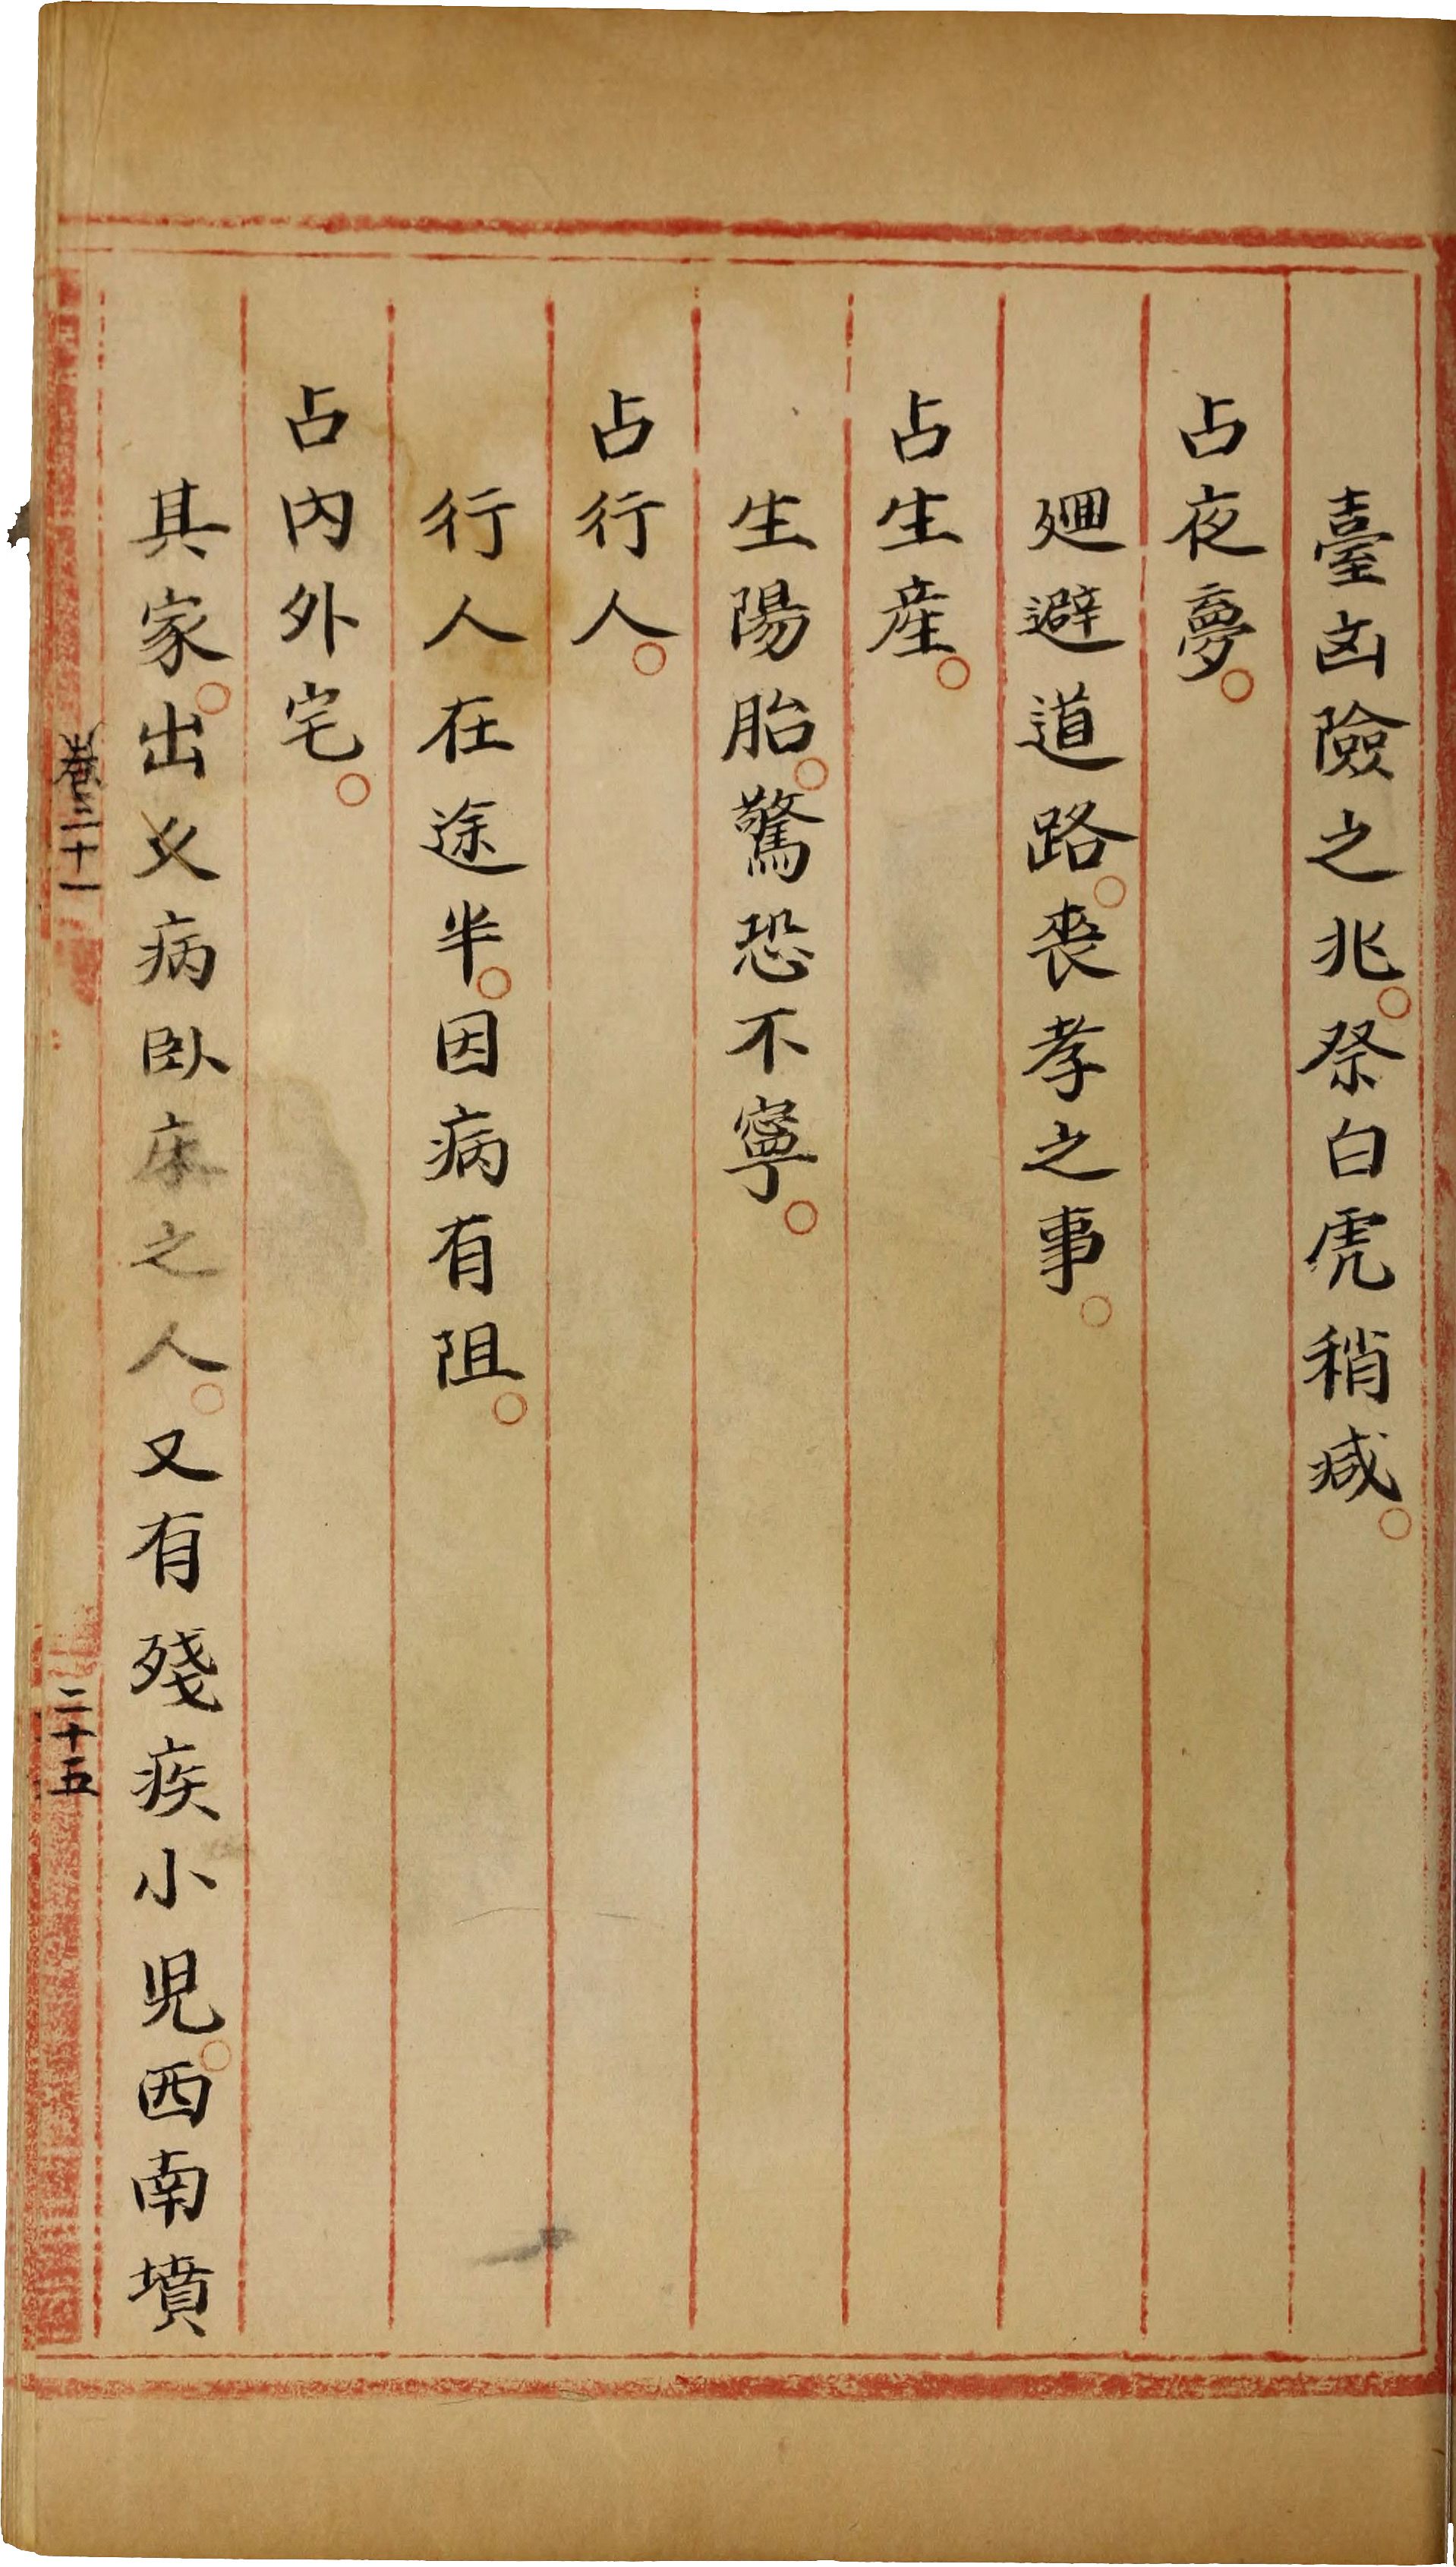 臺凶險之兆。祭白虎稍减。
占夜夢。
廻避道路。喪孝之事。
占生産。
生陽胎。驚恐不寧。
占行人。
行人在途半。因病有阻。
占內外宅。
其家。出久病臥床之人。又有殘疾小児。西南墳
卷三十一
二十五